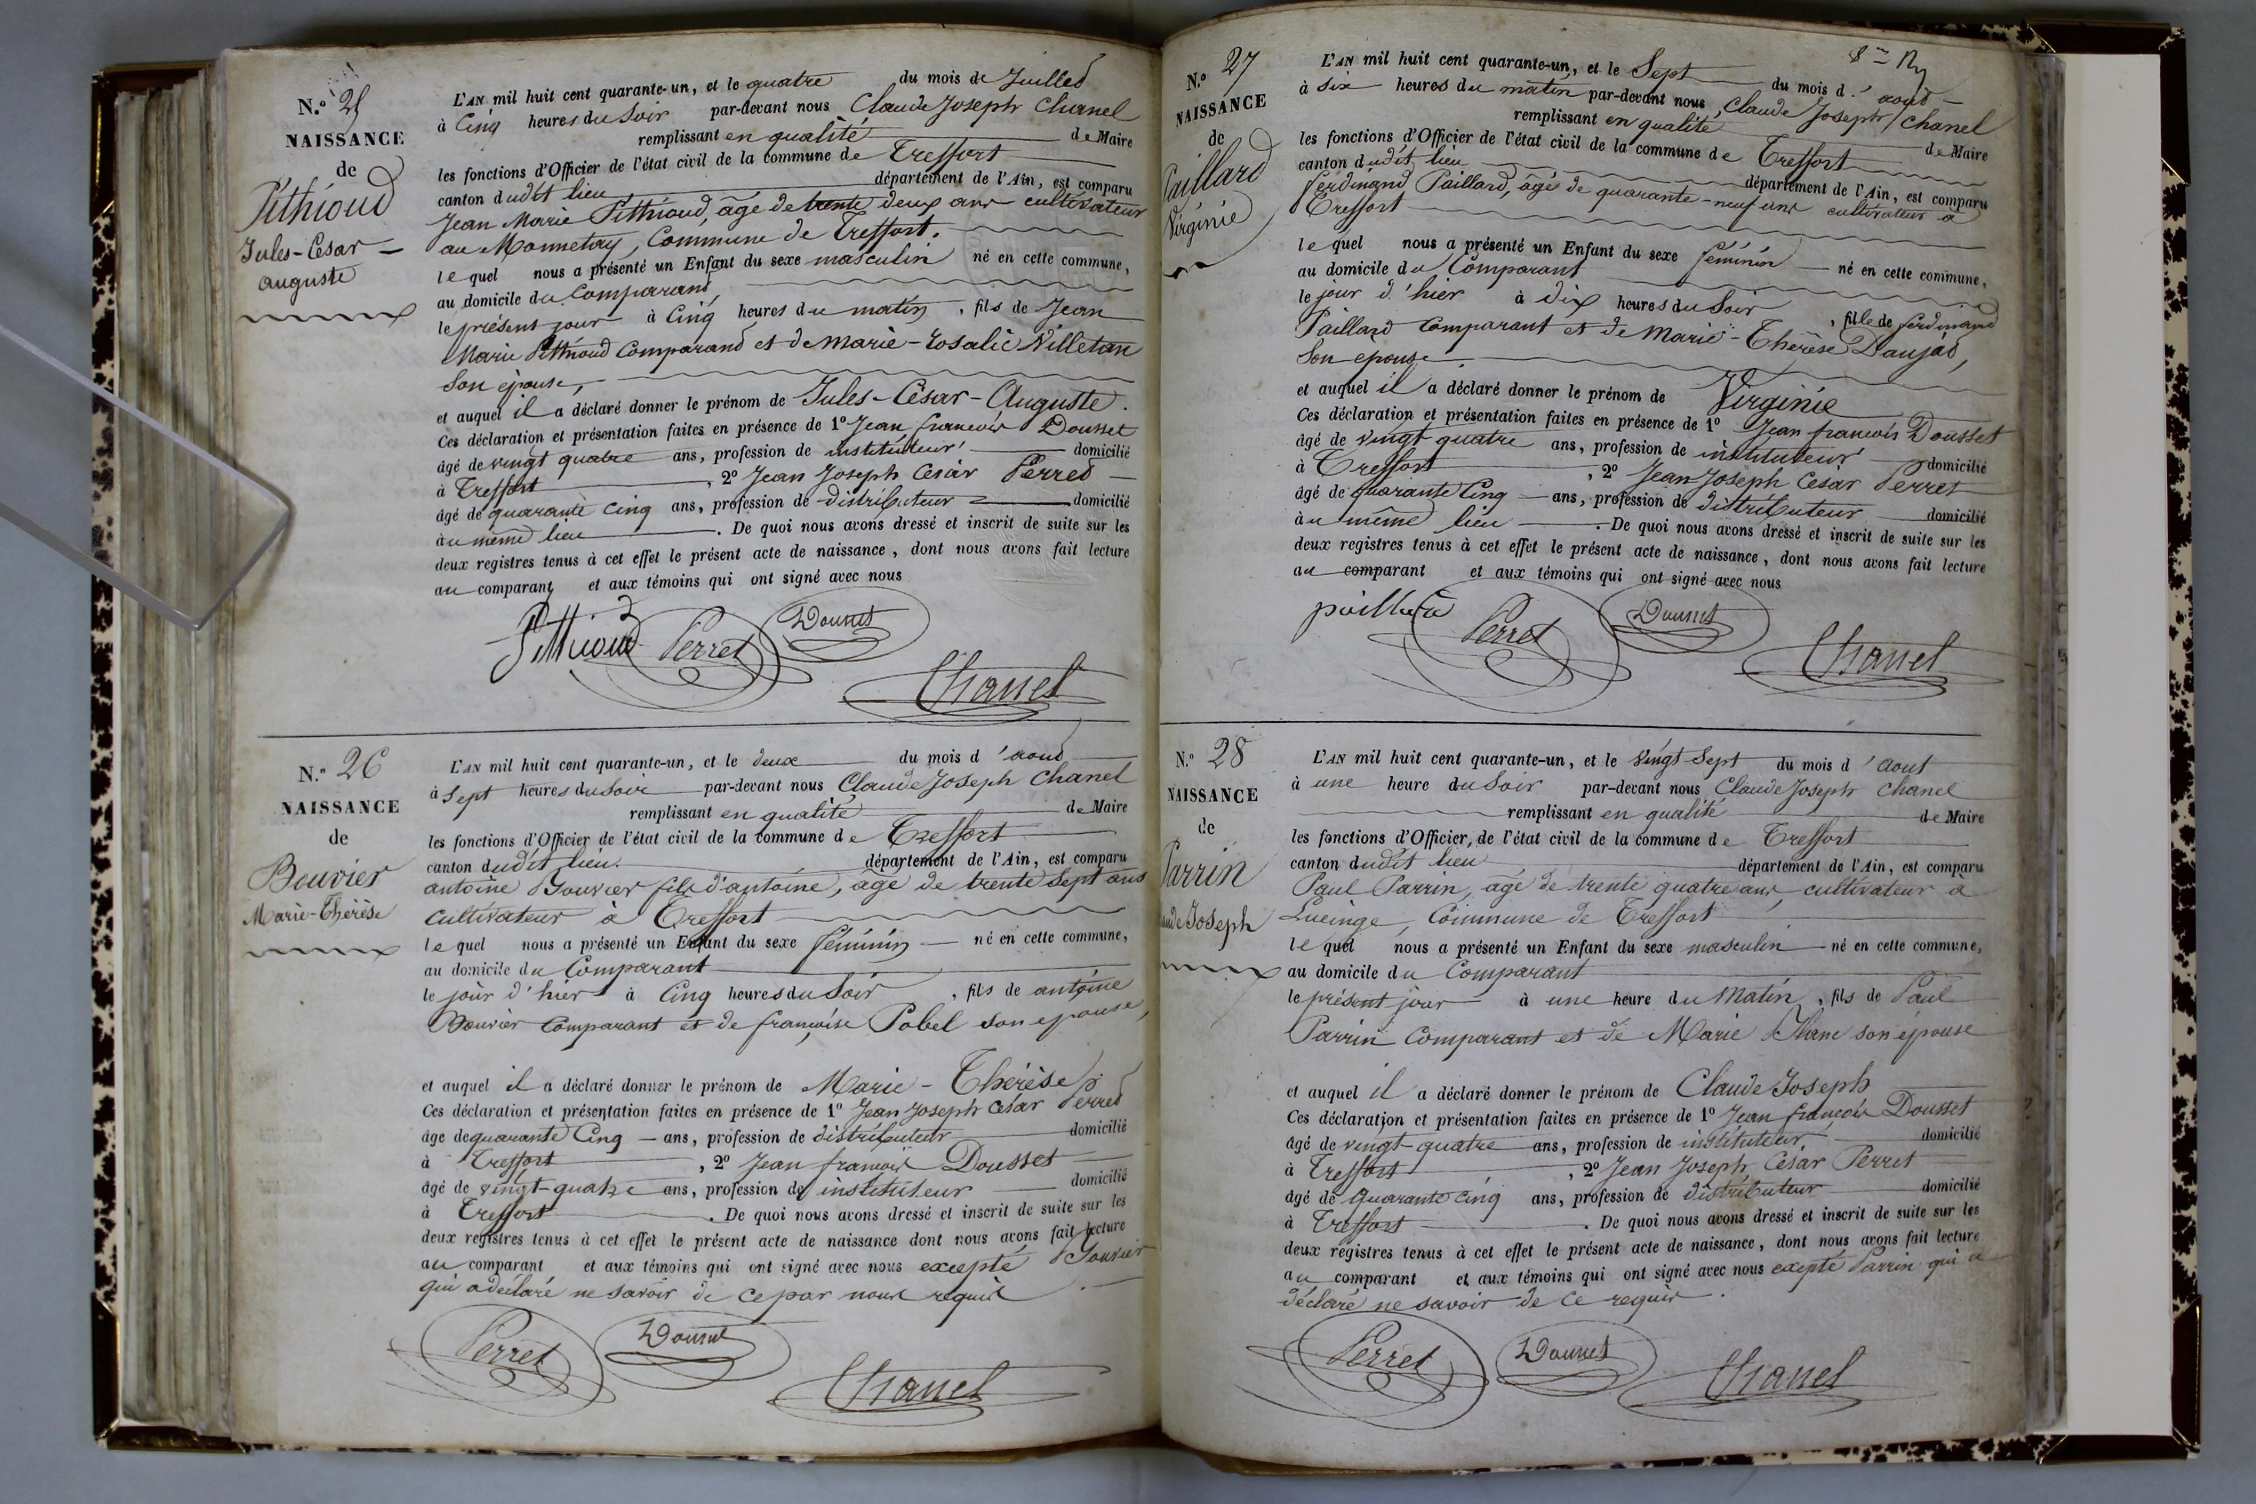 N.° 25
NAISSANCE
de
Péthioud
Jules-César
auguste
L'AN mil huit cent quarante-un, et le quatre du mois de Juillet
à Cinq heures du Soir par-devant nous Claude Joseph Chanel
remplissant en qualité de Maire
les fonctions d'Officier de l'état civil de la commune de Treffort
canton dudit lieu département de l'Ain, est comparu
Jean Marie Péthioud, âgé de trente deux ans cultivateur
au Monnetay, Commune de Treffort.
lequel nous a présenté un Enfant du sexe masculin né en cette commune,
au domicile du Comparant,
le présent jour à Cinq heures du matin, fils de Jean
Marie Péthioud Comparant et de Marie-Rosalie Villetan
Son épouse,
et auquel il a déclaré donner le prénom de Jules-César-Auguste.
Ces déclaration et présentation faites en présence de 1° Jean françois Dousset
âgé de vingt quatre ans, profession de instituteur domicilié
à Treffort, 2° Jean Joseph César Perret
âgé de quarante cinq ans, profession de distributeur domicilié
au même lieu. De quoi nous avons dressé et inscrit de suite sur les
deux registres tenus à cet effet le présent acte de naissance, dont nous avons fait lecture
au comparant et aux témoins qui ont signé avec nous
Péthioud Perret Dousset
Chanel
N.° 26
NAISSANCE
de
Bouvier
Marie-Thérèse
L'AN mil huit cent quarante-un, et le deux du mois d'aout
à Sept heures du Soir par-devant nous Claude Joseph Chanel
remplissant en qualité de Maire
les fonctions d'Officier de l'état civil de la commune de Treffort
canton dudit lieu. département de l'Ain, est comparu
antoine Bouvier fils d'antoine, âgé de trente Sept ans
Cultivateur à Treffort
lequel nous a présenté un Enfant du sexe féminin né en cette commune,
au domicile du Comparant
le jour d'hier à Cinq heures du Soir, fils de antoine
Bouvier Comparant et de françoise Pobel son epouse,
et auquel il a déclaré donner le prénom de Marie-Thérèse
Ces déclaration et présentation faites en présence de 1° Jean Joseph César Perret
âge de quarante Cinq ans, profession de distributeur domicilié
à Treffort, 2° Jean françois Dousset
âgé de vingt-quatre ans, profession de instituteur domicilié
à Treffort. De quoi nous avons dressé et inscrit de suite sur les
deux registres tenus à cet effet le présent acte de naissance dont nous avons fait lecture
au comparant et aux témoins qui ont signé avec nous excepté Bouvier
qui a déclaré ne savoir de ce par nous requis.
Perret Dousset
Chanel
N.° 27
NAISSANCE
de
Paillard
Virginie
L'AN mil huit cent quarante-un, et le Sept du mois d'aout
à Six heures du matin par-devant nous Claude Joseph Chanel
remplissant en qualité de Maire
les fonctions d'Officier de l'état civil de la commune de Treffort
canton dudit lieu département de l'Ain, est comparu
ferdinand Paillard, âgé de quarante-neuf ans cultivateur à
Treffort
lequel nous a présenté un Enfant du sexe féminin né en cette commune,
au domicile du Comparant
le jour d'hier à dix heures du Soir, fille de ferdinand
Paillard Comparant et de Marie-Thérèse Daujat,
Son epouse.
et auquel il a déclaré donner le prénom de Virginie
Ces déclaration et présentation faites en présence de 1° Jean françois Dousset
âgé de vingt quatre ans, profession de instituteur domicilié
à Treffort, 2° Jean Joseph César Perret
âgé de quarante Cinq ans, profession de distributeur domicilié
au même lieu. De quoi nous avons dressé et inscrit de suite sur les
deux registres tenus à cet effet le présent acte de naissance, dont nous avons fait lecture
au comparant et aux témoins qui ont signé avec nous
paillard Perret Dousset
Chanel
N.° 28
NAISSANCE
de
Parrin
aude Joseph
L'AN mil huit cent quarante-un, et le Vingt-Sept du mois d'aout
à une heure du Soir par-devant nous Claude Joseph Chanel
remplissant en qualité de Maire
les fonctions d'Officier, de l'état civil de la commune de Treffort
canton dudit lieu département de l'Ain, est comparu
Paul Parrin, âgé de trente quatre ans, cultivateur à
Lucinge, Commune de Treffort
lequel nous a présenté un Enfant du sexe masculin né en cette commune,
au domicile du Comparant
le présent jour à une heure du Matin, fils de Paul
Parrin Comparant et de Marie son épouse
et auquel il a déclaré donner le prénom de Claude Joseph
Ces déclaration et présentation faites en présence de 1° Jean françois Dousset
âgé de vingt-quatre ans, profession de instituteur domicilié
à Treffort, 2° Jean Joseph César Perret
âgé de Quarante cinq ans, profession de distributeur domicilié
à Treffort. De quoi nous avons dressé et inscrit de suite sur les
deux registres tenus à cet effet le présent acte de naissance, dont nous avons fait lecture
au comparant et aux témoins qui ont signé avec nous excepté Parrin qui a
déclaré ne savoir de ce requis.
Perret Dousset
Chanel